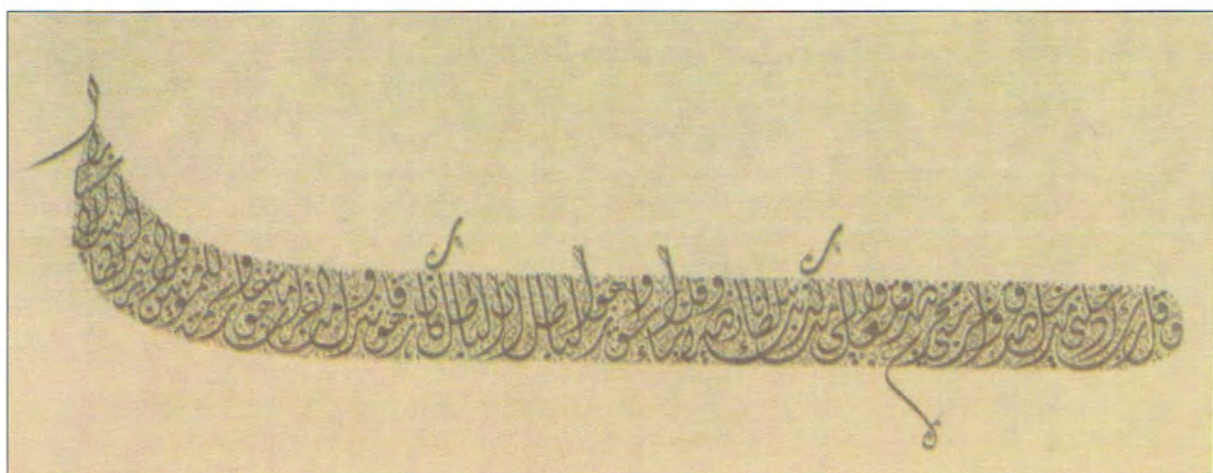 وقل رب أدخلني مدخل صدق وأخرجني مخرج صدق واجعل لي من لدنك سلطانا نصيرا وقل جاء الحق وزهق الباطل إن الباطل كان زهوقا وننزل من القرآن ما هو شفاء ورحمة للمؤمنين ولا يزيد الظالمين إلا خسارا